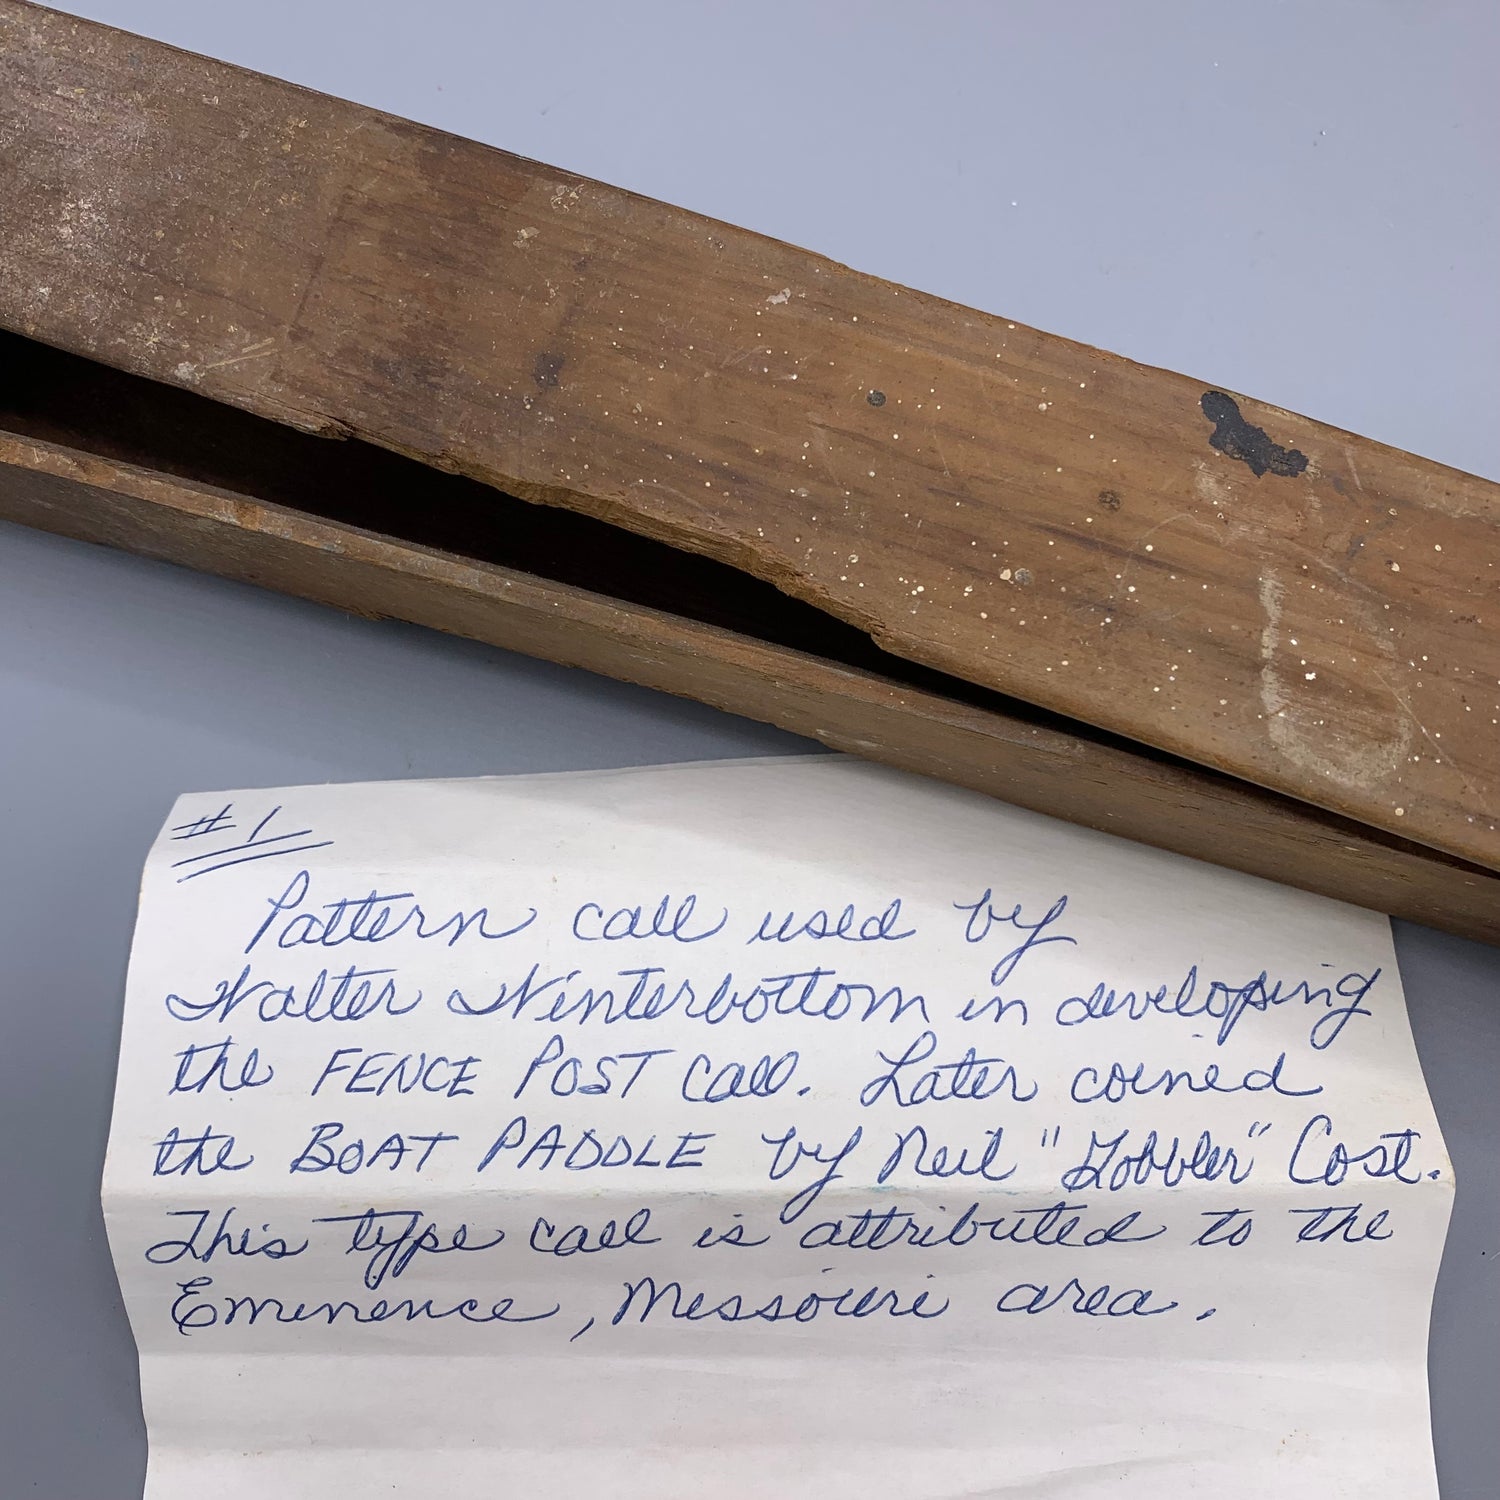 #1
Pattern call used by
Walter Winterbottom in developing
the FENCE POST Call. Later coined
the BOAT PADDLE by Neil "Gobbler" Cost.
This type call is attributed to the
Eminence, Missouri area.